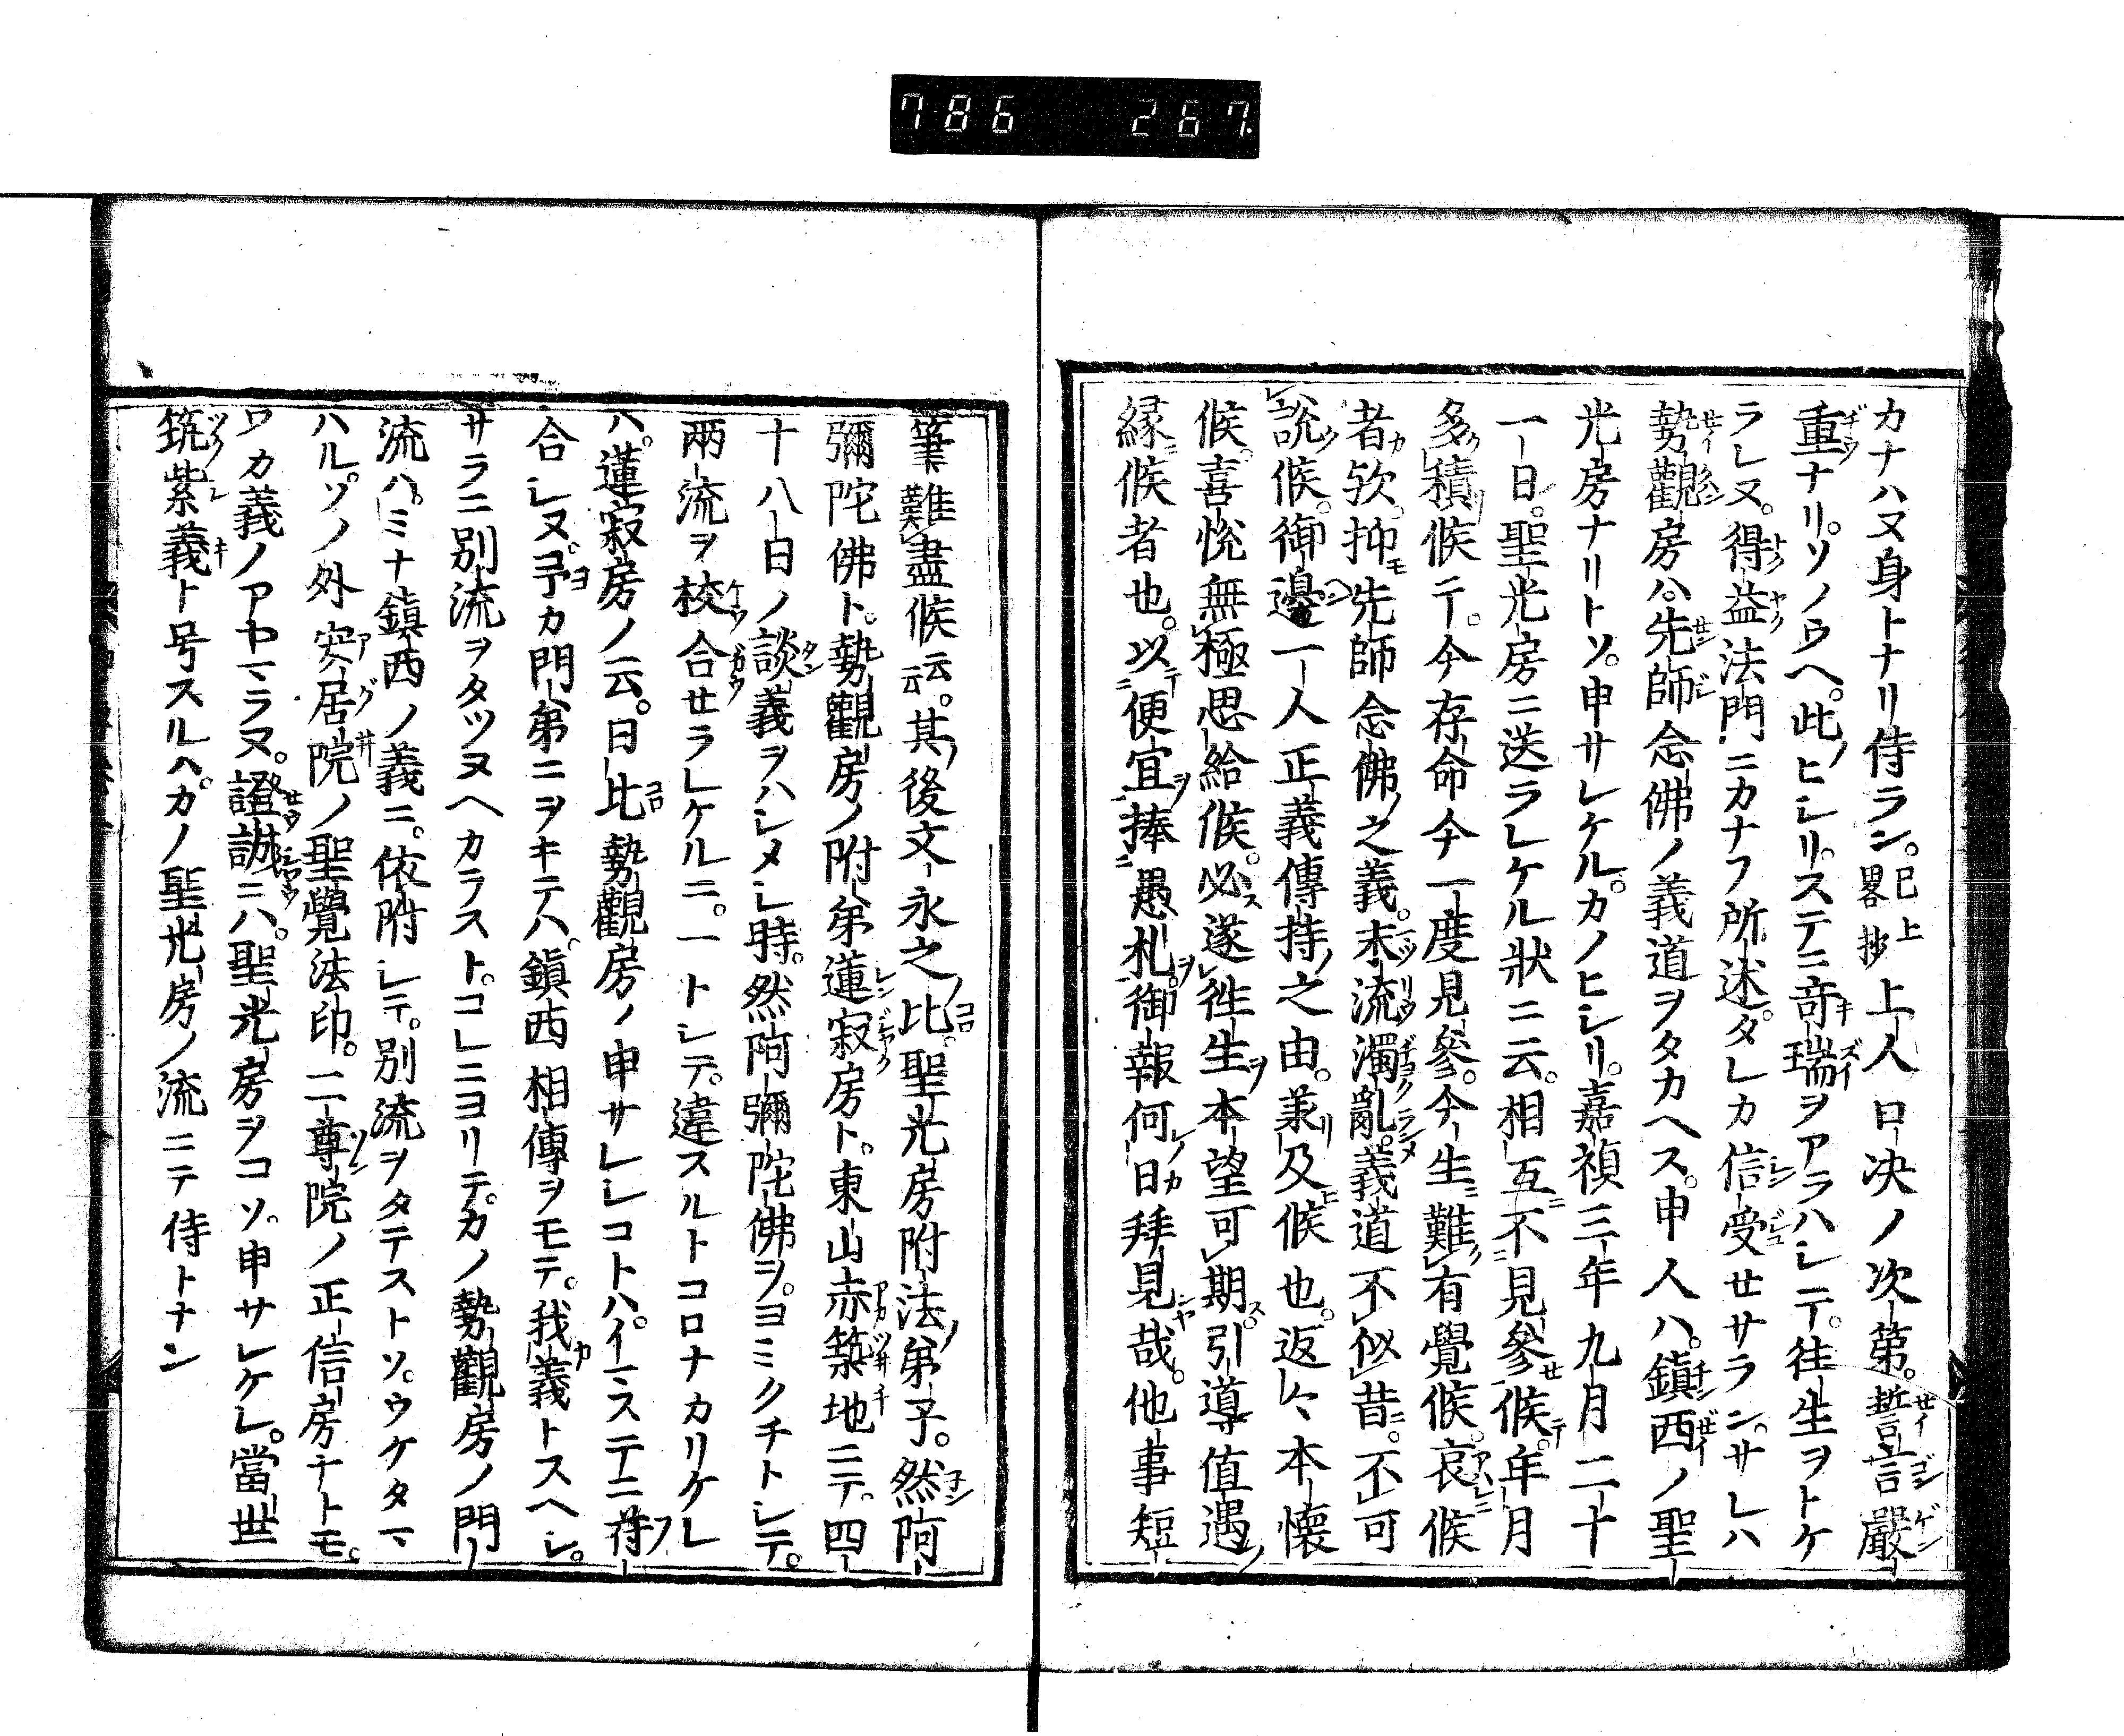 786 267
カナハヌ身トナリ侍ラン。已上畧抄上人口决ノ次第。誓言嚴
重ナリ。ソノウヘ。此ヒシリ。ステニ奇瑞ヲアラハシテ。往生ヲトケ
ラレヌ。得益法門ニカナフ所述。タレカ信受セサラン。サレハ
勢觀房ハ。先師念佛ノ義道ヲタカヘス。申人ハ。鎮西ノ聖
光房ナリトソ。申サレケル。カノヒシリ。嘉禎三年九月二十
一日。聖光房ニ送ラレケル狀ニ云。相互不見參候。年月
多積候テ。今存命今一度見參。今生難有覺候。哀候
者欤。抑先師念佛之義。末流濁亂。義道不似昔。不可
說候。御邊一人正義傳持之由。兼及候也。返々本懐
候。喜悅無極思給候。必遂徃生本望可期引導值遇
縁候者也。以便宜捧愚札。御報何日拜見哉。他事短
筆難盡候云云。其後文永之比。聖光房附法弟子。然阿
彌陀佛ト。勢觀房ノ附弟蓮寂房ト。東山赤築地ニテ。四
十八日ノ談義ヲハシメシ時。然阿彌陀佛ヲ。ヨミクチトシテ。
兩流ヲ校合セラレケルニ。一トシテ。違スルトコロナカリケレ
ハ。蓮寂房ノ云。日比勢觀房ノ申サレシコトハ。イマステニ符
合シヌ。予カ門弟ニヲキテハ。鎮西相傳ヲモテ。我義トスヘシ。
サラニ別流ヲタツヌヘカラスト。コレニヨリテ。カノ勢觀房ノ門
流ハ。ミナ鎮西ノ義ニ。依附シテ。別流ヲタテストソ。ウケタマ
ハル。ソノ外安居院ノ聖覺法印。二尊院ノ正信房ナトモ。
ワカ義ノアヤマラヌ。證誠ニハ。聖光房ヲコソ。申サレケレ。當世
筑紫義ト号スルハ。カノ聖光房ノ流ニテ侍トナン